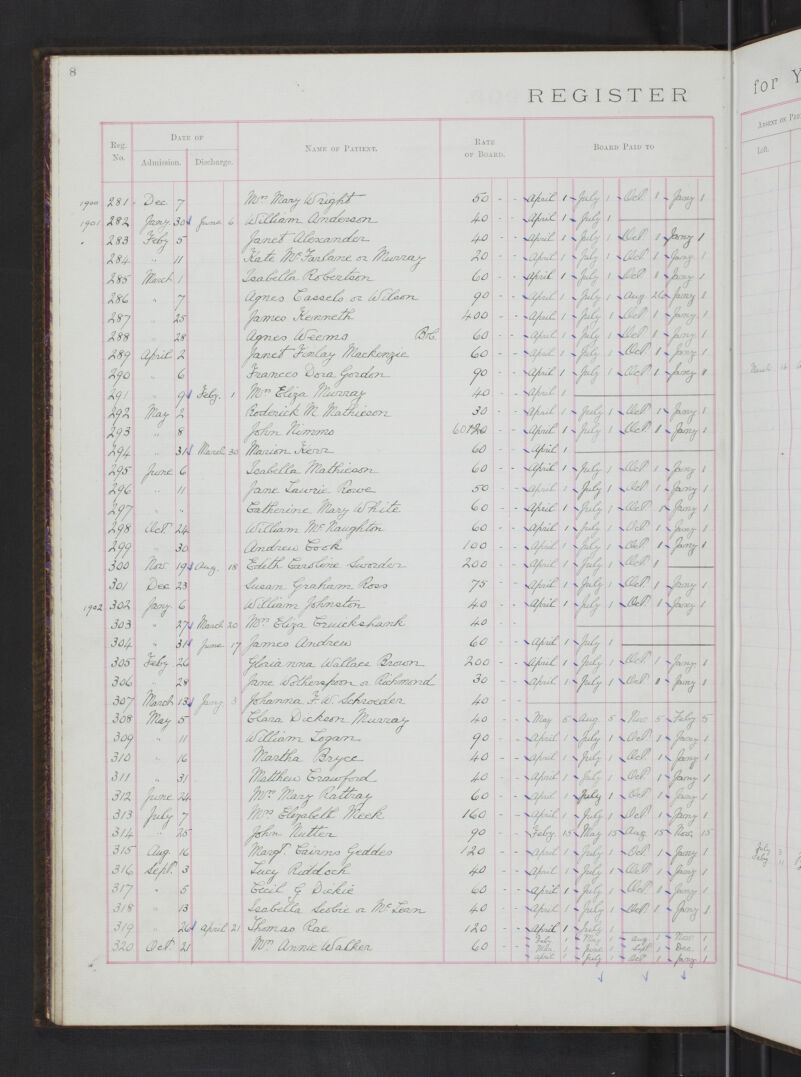 8
REGISTER
for Y
Reg. No. DATE OF Admission. Discharge. NAME OF PATIENT. RATE OF BOARD. BOARD PAID TO
Left.
1900 281 Dec 7 Mrs Mary Wright 50 - - April 1 July 1 Oct 1 Jany 1
1901 282 Jany 30 June 6 William Anderson 40 - - April 1 July 1
283 Feby 5 Janet Alexander 40 - - April 1 July 1 Oct 1 Jany 1
284 " 11 Kate McFarlane or Murray 20 - - April 1 July 1 Oct 1 Jany 1
285 March 1 Isabella Robertson 60 - - April 1 July 1 Oct 1 Jany 1
286 " 7 Agnes Cassels or Wilson 90 - - April 1 July 1 Aug 26 Jany 1
287 " 25 James Kenneth 400 - - April 1 July 1 Oct 1 Jany 1
288 " 28 Agnes Weems 60 - - April 1 July 1 Oct 1 Jany 1
289 April 2 Janet Finlay Mackenzie 60 - - April 1 July 1 Oct 1 Jany 1
290 " 6 Frances Dora Gordon 90 - - April 1 July 1 Oct 1 Jany 1
291 " 9 Feby. 1 Mrs Eliza Murray 40 - - April 1
292 May 2 Roderick M. Mathieson 30 - - April 1 July 1 Oct 1 Jany 1
293 " 8 John Nimmo - - April 1 July 1 Oct 1 Jany 1
294 " 31 March 30 Marion Kerr 60 - - April 1
295 June 6 Isabella Mathieson 60 - - April 1 July 1 Oct 1 Jany 1
296 " 11 Jane Lawrie Rowe 50 - - April 1 July 1 Oct 1 Jany 1
297 " " Catherine Mary White 60 - - April 1 July 1 Oct 1 Jany 1
298 Oct. 24 William McNaughton 60 - - April 1 July 1 Oct 1 Jany 1
299 " 30 Andrew Cook 100 - - April 1 July 1 Oct 1 Jany 1
300 Nov. 19 Aug. 18 Edith Caroline Sworder 200 - - April 1 July 1 Oct 1
301 Dec 23 Susan Graham Ross 75 - - April 1 July 1 Oct 1 Jany 1
1902 302 Jany. 6 William Johnston 40 - - April 1 July 1 Oct 1 Jany 1
303 " 27 March 20 Mrs Eliza Cruickshank 40 - -
304 " 31 June 17 James Andrew 60 - - April 1 July 1
305 Feby 26 Glorianna Wallace Brown 200 - - April 1 July 1 Oct 1 Jany 1
306 " 28 Jane Wotherspoon or Richmond 30 - - April 1 July 1 Oct 1 Jany 1
307 March 13 Jany 3 Johanna F. W. Schroeder 40 - -
308 May 5 Clara Dickson Murray 40 - - May 5 Aug. 5 Nov. 5 Feby 5
309 " 11 William Logan 90 - - April 1 July 1 Oct 1 Jany 1
310 " 16 Martha Bryce 40 - - April 1 July 1 Oct 1 Jany 1
311 " 31 Matthew Crawford 40 - - April 1 July 1 Oct 1 Jany 1
312 June 24 Mrs Mary Rattray 60 - - April 1 July 1 Oct 1 Jany 1
313 July 7 Mrs Elizabeth Meek 160 - - April 1 July 1 Oct 1 Jany 1
314 " 25 John Nutter 90 - - Feby. 15 May 15 Aug 15 Nov. 15
315 Aug. 16 Margt. Cairns Geddes 120 - - April 1 July 1 Oct 1 Jany 1
316 Sept. 3 Lucy Riddoch 40 - - April 1 July 1 Oct 1 Jany 1
317 " 5 Cecil G Dickie 60 - - April 1 July 1 Oct 1 Jany 1
318 " 13 Isabella Scobie or McLern 40 - - April 1 July 1 Oct 1 Jany 1
319 " 26 April 21 Thomas Rae 120 - - April 1 July 1
320 Oct. 21 Mrs Annie Walker 60 - - Feby 1 May 1 Aug 1 Nov. 1
Mch. 1 June 1 Sept 1 Dec. 1
April 1 July 1 Oct 1 Jany 1